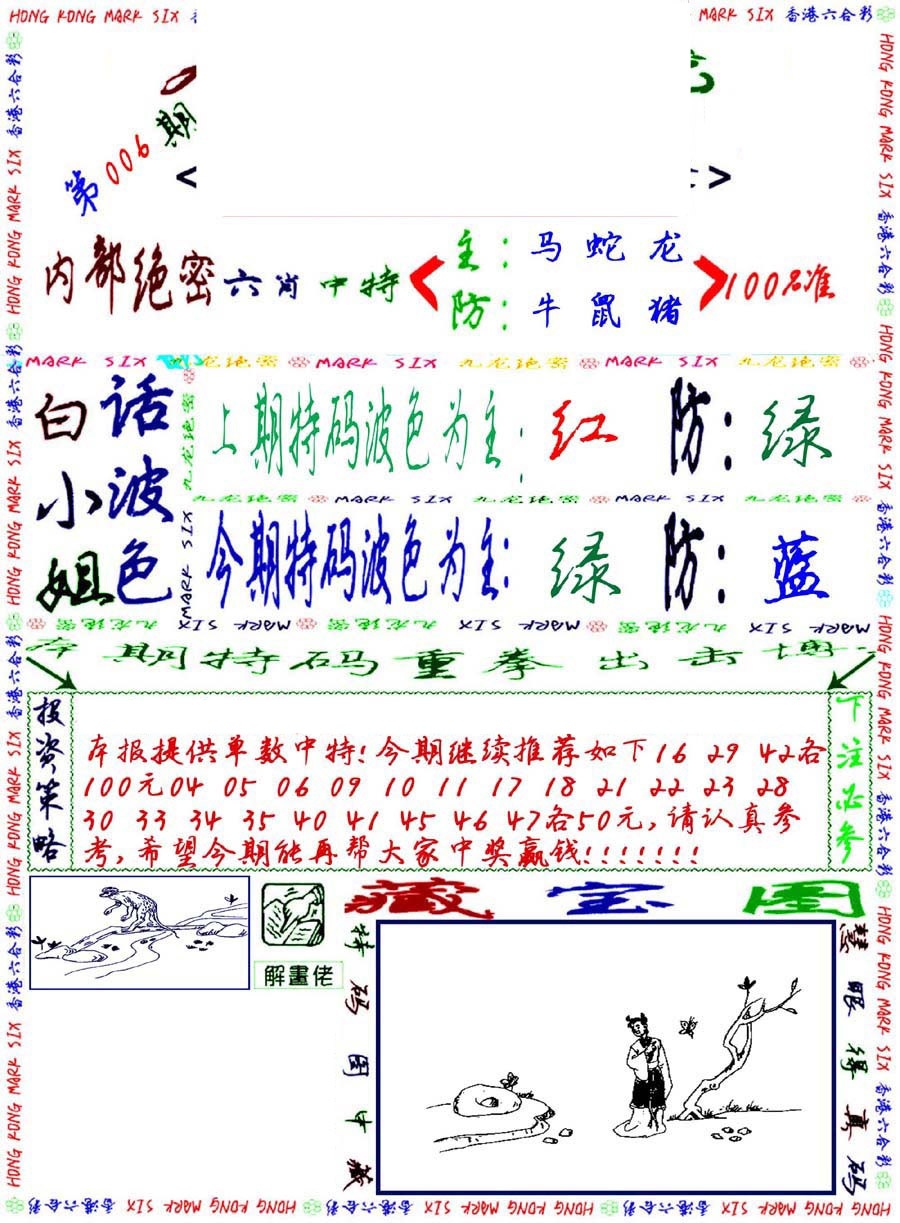 HONG KONG MARK SIX
MARK SIX 香港六合彩
第006期
< >
内部绝密六肖中特
主：马 蛇 龙
防：牛 鼠 猪
100%准
MARK SIX 九龙绝密 MARK SIX 九龙绝密 MARK SIX 九龙绝密
白话小姐
波色
上期特码波色为主：红 防：绿
九龙绝密 MARK SIX 九龙绝密 MARK SIX 九龙绝密
今期特码波色为主：绿 防：蓝
九龙绝密 MARK SIX 九龙绝密 MARK SIX 九龙绝密 MARK SIX
本期特码重拳出击博
投资策略
本报提供单数中特！今期继续推荐如下16 29 42各
100元04 05 06 09 10 11 17 18 21 22 23 28
30 33 34 35 40 41 45 46 47各50元，请认真参
考，希望今期能再帮大家中奖赢钱！！！！！！！
下注必参
解畫佬
藏宝图
特码图中藏
慧眼得真码
HONG KONG MARK SIX 香港六合彩 HONG KONG MARK SIX 香港六合彩 HONG KONG MARK SIX 香港六合彩